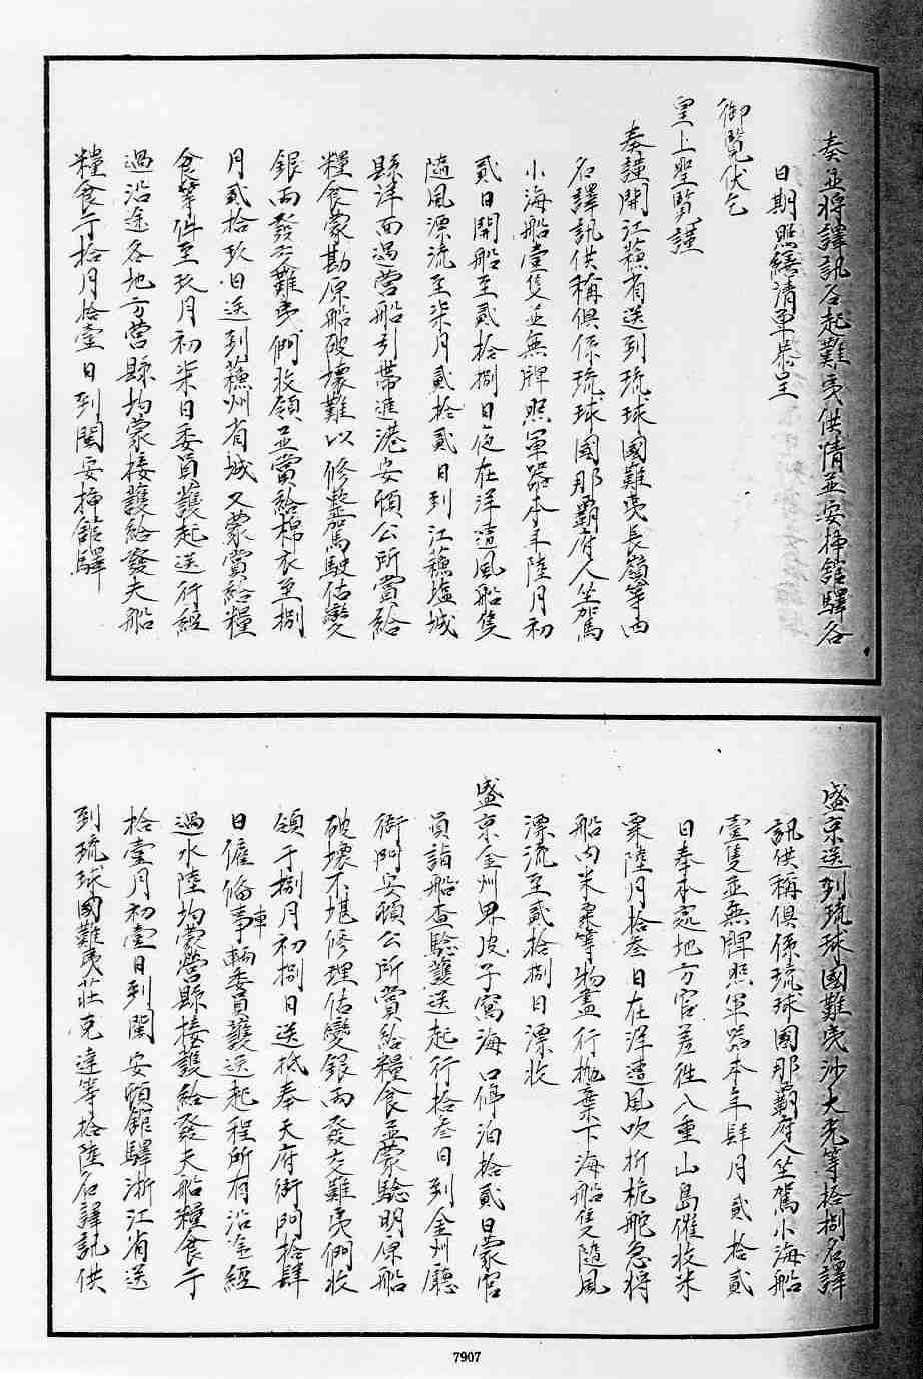 奏並將譯訊各起難夷供情並安揷舘驛各
日期照繕清單恭呈
御覽伏乞
皇上聖覽謹
奏謹開江蘓省送到琉球國難夷長嶺等四
名譯訊供稱俱係琉球國那覇府人坐駕
小海船壹隻並無牌照軍器本年陸月初
貳日開船至貳拾捌日夜在洋遭風船隻
隨風漂流至柒月貳拾貳日到江蘓塩城
縣洋面過營船引帶進港安頓公所賞給
糧食蒙勘原船破壞難以修整駕駛估變
銀兩發交難夷們收領並賞給棉衣至捌
月貳拾玖日送到蘓州省城又蒙賞給糧
食等件至玖月初柒日委員護起送行經
過沿途各地方營縣均蒙接護給發夫船
糧食于拾月拾壹日到閩安揷舘驛
盛京送到琉球國難夷沙大老等捻捌名譯
訊供稱俱係琉球國那覇府人坐駕小海船
壹隻並無牌照軍器本年肆月貳拾貳
日奉本處地方官差徃八重山島催收米
粟陸月拾叁日在洋遭風吹折桅舵急將
船內米粟等物盡行抛棄下海船隻隨風
漂流至貳拾捌日漂收
盛京金州界皮子窩海口停泊拾貳日蒙官
員詣船查驗護送起行拾叁日到金州廳
衙門安頓公所賞給糧食並蒙驗明原船
破壞不堪修理估變銀兩發交難夷們收
領于捌月初捌日送抵奉天府衙門拾肆
日僱備車輌委員護送起程所有沿途經
過水陸均蒙營縣接護給發夫船糧食于
拾壹月初壹日到閩安頓舘驛浙江省送
到琉球國難夷莊克達等拾陸名譯訊供
7907